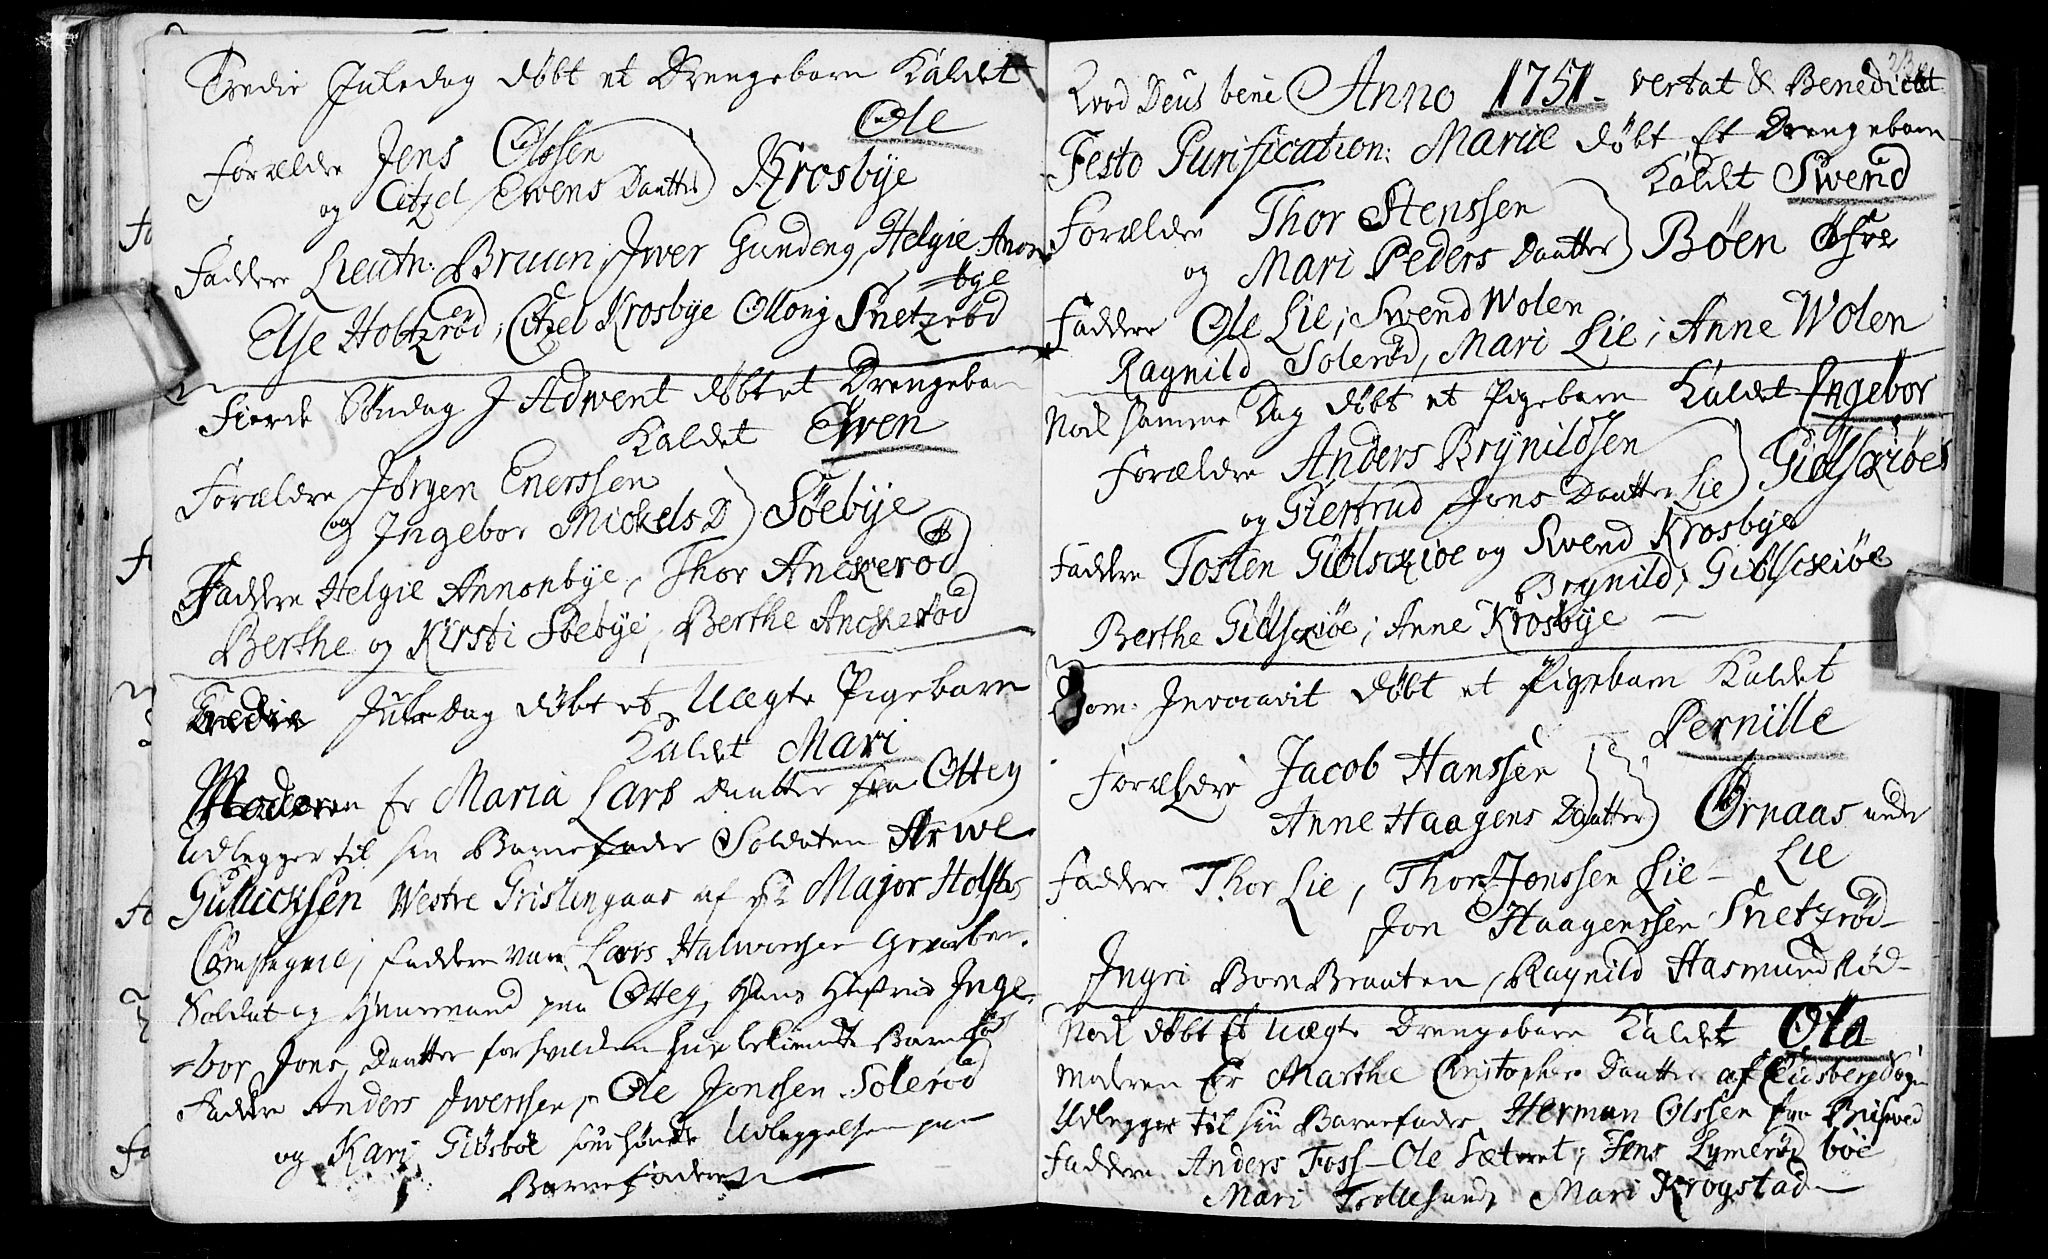 Tredie Juledag døbt et Drengebarn Kaldet
Ole
Forældre Jens Olssen
og Citzel Evens Daatter) Krosbye
Faddere Lieutn: Bruun, Iver Gundeng, Helgie Anon
=bye
Else Holtzrød, Citzel Krosbye Ollong Snetzrød
Fierde Søndag J Adwent døbt et Drengebarn
Kaldet Ewen
Forældre Jørgen Enerssen
og Ingebor Mickels D) Søebye
Faddere Helgie Annonbye, Thor Anckerød
Berthe og Kirsti Søebye, Berthe Anckerød
Tredie Juledag døbt et Uægte Pigebarn
Kaldet Mari
Moderen Er Maria Lars Daatter fra Ottey
Udlegger til sin Barnefader Soldaten Arwe
Gullicksen Westre Grislingaas af Hr Major Holstes
Compagnie, Faddere var Lars Halworsen Geworben
Soldat og Huusmand paa Ottey, Hans Hustrue Inge
=bor Jons Daatter for hvilken hun bekiendte Barnefad
Faddere Anders Iwerssen, Ole Jonssen Solerød
og Kari Giøsbøe som hørte Udleggelsen paa
Barnefaderen
23
Qvod Deus bene Anno 1751 vertat & Benedicat
Festo Purification: Mariæ døbt Et Drengebarn
Kaldet Swend
Forældre Thor Stenssen
og Mari Peders Daatter) Bøen Øfre
Faddere Ole Lie, Swend Wolen
Ragnild Solerød, Mari Lie, Anne Wolen
Nok samme Dag døbt et Pigebarn Kaldet Ingebor
Forældre Anders Brynildsen
og Giertrud Jens Daatter Lie) Gidlschiøe
Faddere Tosten Gidlschiøe og Swend Krosbye
Brynild Gidlschiøe
Berthe Gidlschiøe, Anne Krosbye
Dom: Invocavit døbt et Pigebarn Kaldet
Pernille
Forældre Jacob Hanssen
Anne Haagens Daatter) Ørnaas under
Lie
Faddere Thor Lie, Thor Jonssen Lie
Jon Haagenssen Snetzrød
Ingri BornBraaten, Ragnild Hasmundrød
Nok døbt Et Uægte Drengebarn Kaldet Ola
Moderen Er Marthe Christophers Daatter af Eidsberg Sogn
Udlegger til sin Barnefader Herman Olssen fra
Faddere Anders Foss Ole Sæteret, Jens Lymerød bøe
Mari Trollesund, Mari Krogstad